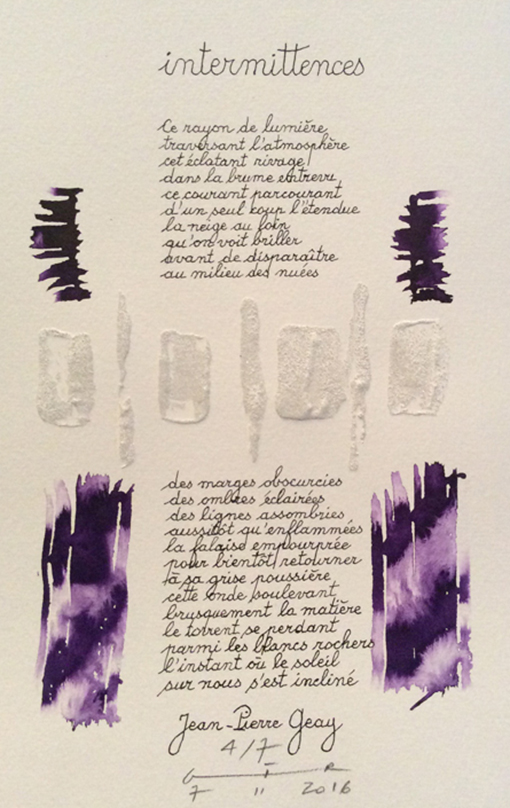 intermittences
Ce rayon de lumière
traversant l'atmosphère
cet éclatant rivage
dans la brume entrevu
ce courant parcourant
d'un seul coup l'étendue
la neige au foin
qu'on voit briller
avant de disparaître
au milieu des nuées
des marges obscurcies
des ombres éclairées
des lignes assombries
aussitôt qu'enflammées
la falaise empourprée
pour bientôt retourner
à sa grise poussière
cette onde soulevant
brusquement la matière
le torrent se perdant
parmi les blancs rochers
l'instant où le soleil
sur nous s'est incliné
Jean-Pierre Geay
4/7
7 11 2016